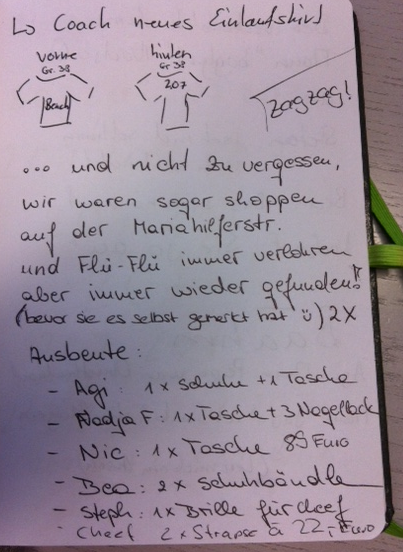 ↳ Coach neues Einlaufshirt
vorne
Gr. 38
Beach
hinten
Gr. 38
207
zagzag!
... und nicht zu vergessen,
wir waren sogar shoppen
auf der Mariahilferstr.
und Flü-Flü immer verlohren
aber immer wieder gefunden!!
(bevor sie es selbst gemerkt hat ü) 2x
Ausbeute:
- Agi: 1x Schuhe + 1 Tasche
- Nadja F: 1x Tasche + 3 Nagellack
- Nic: 1x Tasche 89 Euro
- Bea: 2x Schuhbändle
- Steph: 1x Brille für cheef
- Cheef 2x Strapse à 22,- Euro